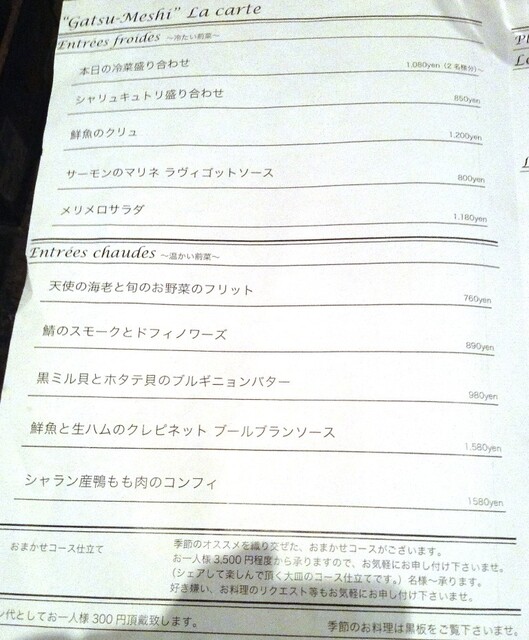 "Gatsu-Meshi" La carte
Entrées froides ～冷たい前菜～
本日の冷菜盛り合わせ 1,080yen（2名様分）～
シャリュキュトリ盛り合わせ 850yen
鮮魚のクリュ 1,200yen
サーモンのマリネ ラヴィゴットソース 800yen
メリメロサラダ 1,180yen
Entrées chaudes ～温かい前菜～
天使の海老と旬のお野菜のフリット 760yen
鯖のスモークとドフィノワーズ 890yen
黒ミル貝とホタテ貝のブルギニョンバター 980yen
鮮魚と生ハムのクレピネット ブールブランソース 1,580yen
シャラン産鴨もも肉のコンフィ 1580yen
おまかせコース仕立て 季節のオススメを織り交ぜた、おまかせコースがございます。
お一人様3,500円程度から承りますので、お気軽にお申し付け下さいませ。
（シェアして楽しんで頂く大皿のコース仕立てです。）名様～承ります。
好き嫌い、お料理のリクエスト等もお気軽にお申し付け下さいませ。
代としてお一人様300円頂戴致します。 季節のお料理は黒板をご覧下さいませ。